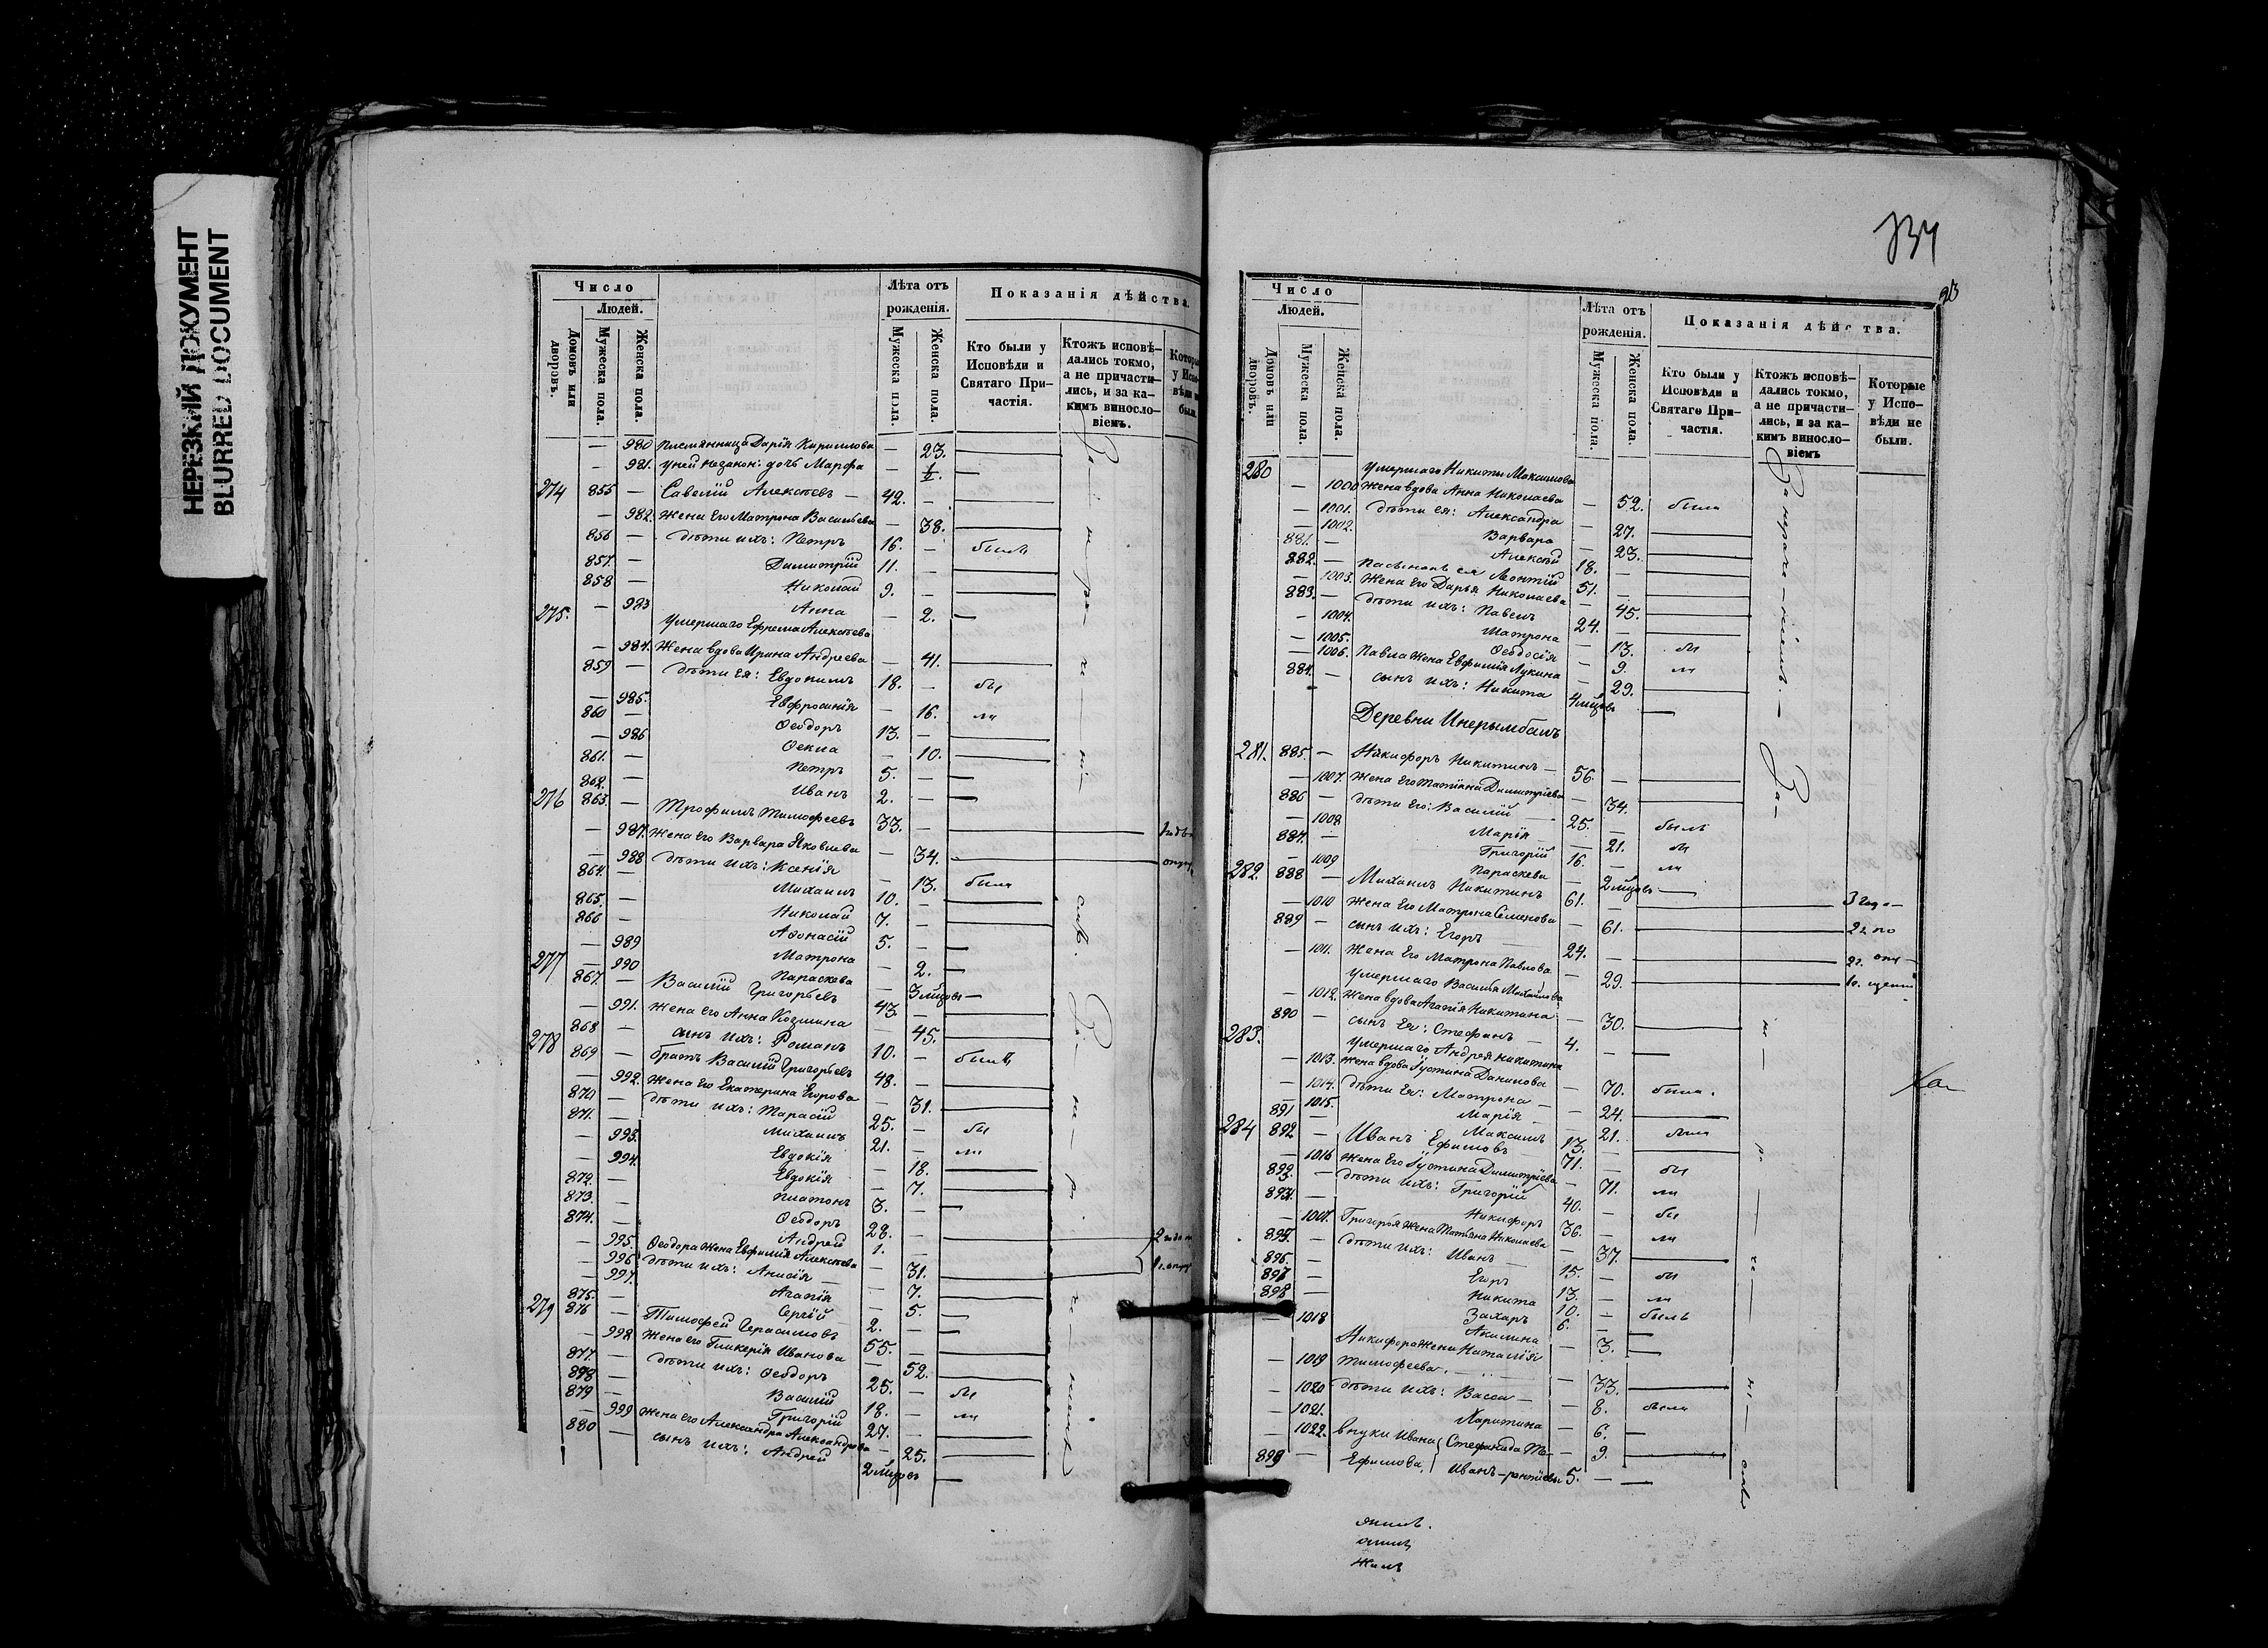 НЕРЕЗКИЙ ДОКУМЕНТ
BLURRED DOCUMENT
Число
Людей.
Домовъ или дворовъ.
Мужеска пола.
Женска пола.
Лѣта отъ рожденія.
Мужеска пола.
Женска пола.
Показанія дѣйства.
Кто были у Исповѣди и Святаго Причастія.
Ктожъ исповѣдались токмо, а не причастились, и за какимъ винословіемъ.
— 980 племянница Дарія Кириллова — 23.
— 981. у ней незакон: дочь Марфа — ½.
274 855 — Савелій Алексѣевъ — 42. —
— 982. Жена его Матрона Васильева — 38.
856 — дѣти ихъ: Петръ 16. — былъ
857. — Димитрій 11. —
858 — Николай 9. —
— 983 Анна — 2.
275. умершаго Ефрема Алексѣева
— 984. Жена вдова Ирина Андреева — 41.
859 — дѣти ея: Евдокимъ 18. — бы
— 985. Евфросинія — 16. ли
860 — Ѳеодоръ 13. —
— 986 Ѳекла — 10.
861. — Петръ 5. —
862. — Иванъ 2. —
276 863. — Трофимъ Тимофеевъ 33. —
— 987. Жена его Варвара Яковлева — 34.
— 988 дѣти ихъ: Ксенія — 13. была
864. — Михаилъ 10. —
865. — Николай 7. —
866 — Аѳонасій 5. —
— 989 Матрона — 2.
— 990 Параскева — 3 мѣцовъ
277 867. — Василій Григорьевъ 43 —
— 991. Жена его Анна Козмина — 45.
868 — сынъ ихъ: Романъ 10. — былъ
278 869 — братъ Василій Григорьевъ 48. —
— 992. Жена его Екатерина Егорова — 31.
870 — дѣти ихъ: Тарасій 25. — бы
871. — Михаилъ 21. — ли
— 993. Евдокія — 18.
— 994. Евдокія — 7.
872. — Платонъ 3. —
873. — Ѳеодоръ 28. —
874. — Андрей 1. —
— 995. Ѳеодора Жена Евфимія Алексѣева — 31.
— 996 дѣти ихъ: Анисія — 7.
— 997. Агапія — 5.
875. — Сергій 2. —
279 876 — Тимофей Герасимовъ 55. —
— 998 Жена его Гликерія Иванова — 52.
877. — дѣти ихъ: Ѳеодоръ 25. — бы
878 — Василій 18. — ли
879 — Григорій 27. —
— 999 Жена его Александра Александрова — 25.
880 — сынъ ихъ: Андрей 2 мѣцовъ
334
23
Число
Людей.
Домовъ или дворовъ.
Мужеска пола.
Женска пола.
Лѣта отъ рожденія.
Мужеска пола.
Женска пола.
Показанія дѣйства.
Кто были у Исповѣди и Святаго Причастія.
Ктожъ исповѣдались токмо, а не причастились, и за какимъ винословіемъ
Которые у Исповѣди не были.
280 умершаго Никиты Максимова
— 1000 Жена вдова Анна Николаева — 52. была
— 1001. дѣти ея: Александра — 27.
— 1002. Варвара — 23.
881. — Алексѣй 18. —
882. — пасынокъ ея Леонтій 51. —
— 1003. Жена его Дарья Николаева — 45.
883. — дѣти ихъ: Павелъ 24. —
— 1004. Матрона — 13. бы
— 1005. Ѳеодосія — 9. ли
— 1006. Павла Жена Евфимія Лукина — 29.
884. — сынъ ихъ: Никита 4 мѣцовъ
Деревни Инерымбалъ
281. 885. — Никифоръ Никитинъ — 56. —
— 1007. Жена его Татіана Димитріева — 34.
886 — дѣти его: Василій 25. — былъ
— 1008. Марія — 21. бы
887. — Григорій 16. — ли
— 1009 Параскева — 2 мѣцовъ
282. 888 — Михаилъ Никитинъ 61. — 3 года
— 1010 Жена его Матрона Семенова — 61. 2 г. по
889 — сынъ ихъ: Егоръ 24. — 2 г.
— 1011. Жена его Матрона Павлова — 29.
умершаго Василія Михайлова
— 1012. Жена вдова Агапія Никитина — 30.
890 — сынъ ея: Стефанъ 4. —
283. умершаго Андрея Никитина
— 1013. Жена вдова Іустина Данилова — 70. была.
— 1014. дѣти ея: Матрона — 24.
— 1015. Марія — 21. была
891 — Максимъ 13. —
284 892 — Иванъ Ефимовъ 71. — бы
— 1016 Жена его Іустина Димитріева — 71. ли
893. — дѣти ихъ: Григорій 40. — бы
894. — Никифоръ 36. — ли
— 1007. Григорья Жена Татьяна Николаева — 37.
895. — дѣти ихъ: Иванъ 15. — бы
896. — Егоръ 13. — ли
897 — Никита 10. — былъ
898 — Захаръ 6. —
— 1018 Акилина — 3.
Никифора Жена Наталія
— 1019 Тимофеева — 33.
— 1020 дѣти ихъ: Васса — 8. была
— 1021. Харитина — 6.
— 1022. внуки Ивана Стефанида Те- — 9.
899 — Ефимова, Иванъ -рентіевы 5. —